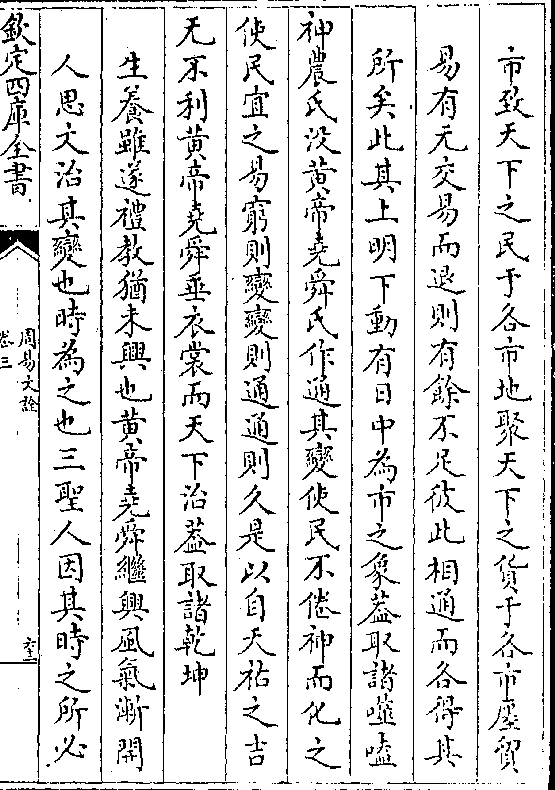 市致天下之民于各市地聚天下之貨于各市廛貿
易有无交易而退則有餘不足彼此相通而各得其
所矣此其上明下動有日中為市之象葢取諸噬嗑
神農氏没黄帝堯舜氏作通其變使民不倦神而化之
使民宜之易窮則變變則通通則久是以自天祐之吉
无不利黄帝堯舜垂衣裳而天下治葢取諸乾坤
生養雖遂禮教猶未興也黄帝堯舜繼興風氣漸開
人思文治其變也時為之也三聖人因其時之所必
欽定四庫全書
周易文詮
卷三